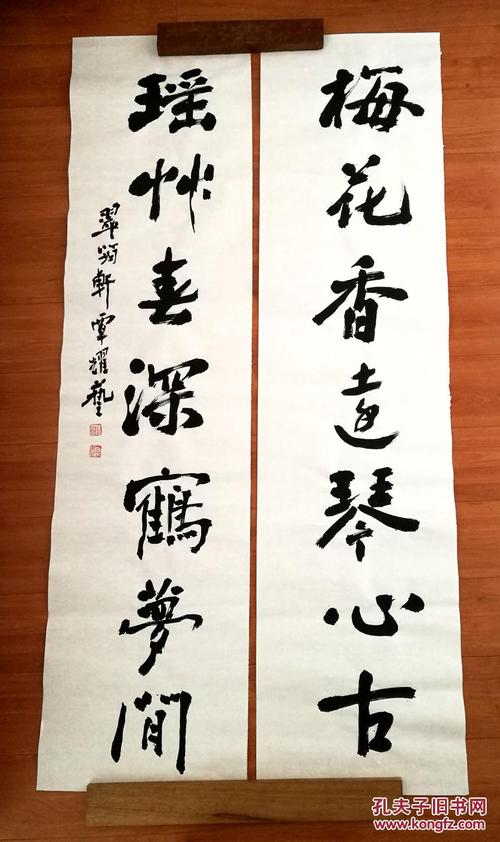 梅花香遠琴心古
瑶艸春深鶴夢閒
覃耀藝
孔夫子旧书网
www.kongfz.com